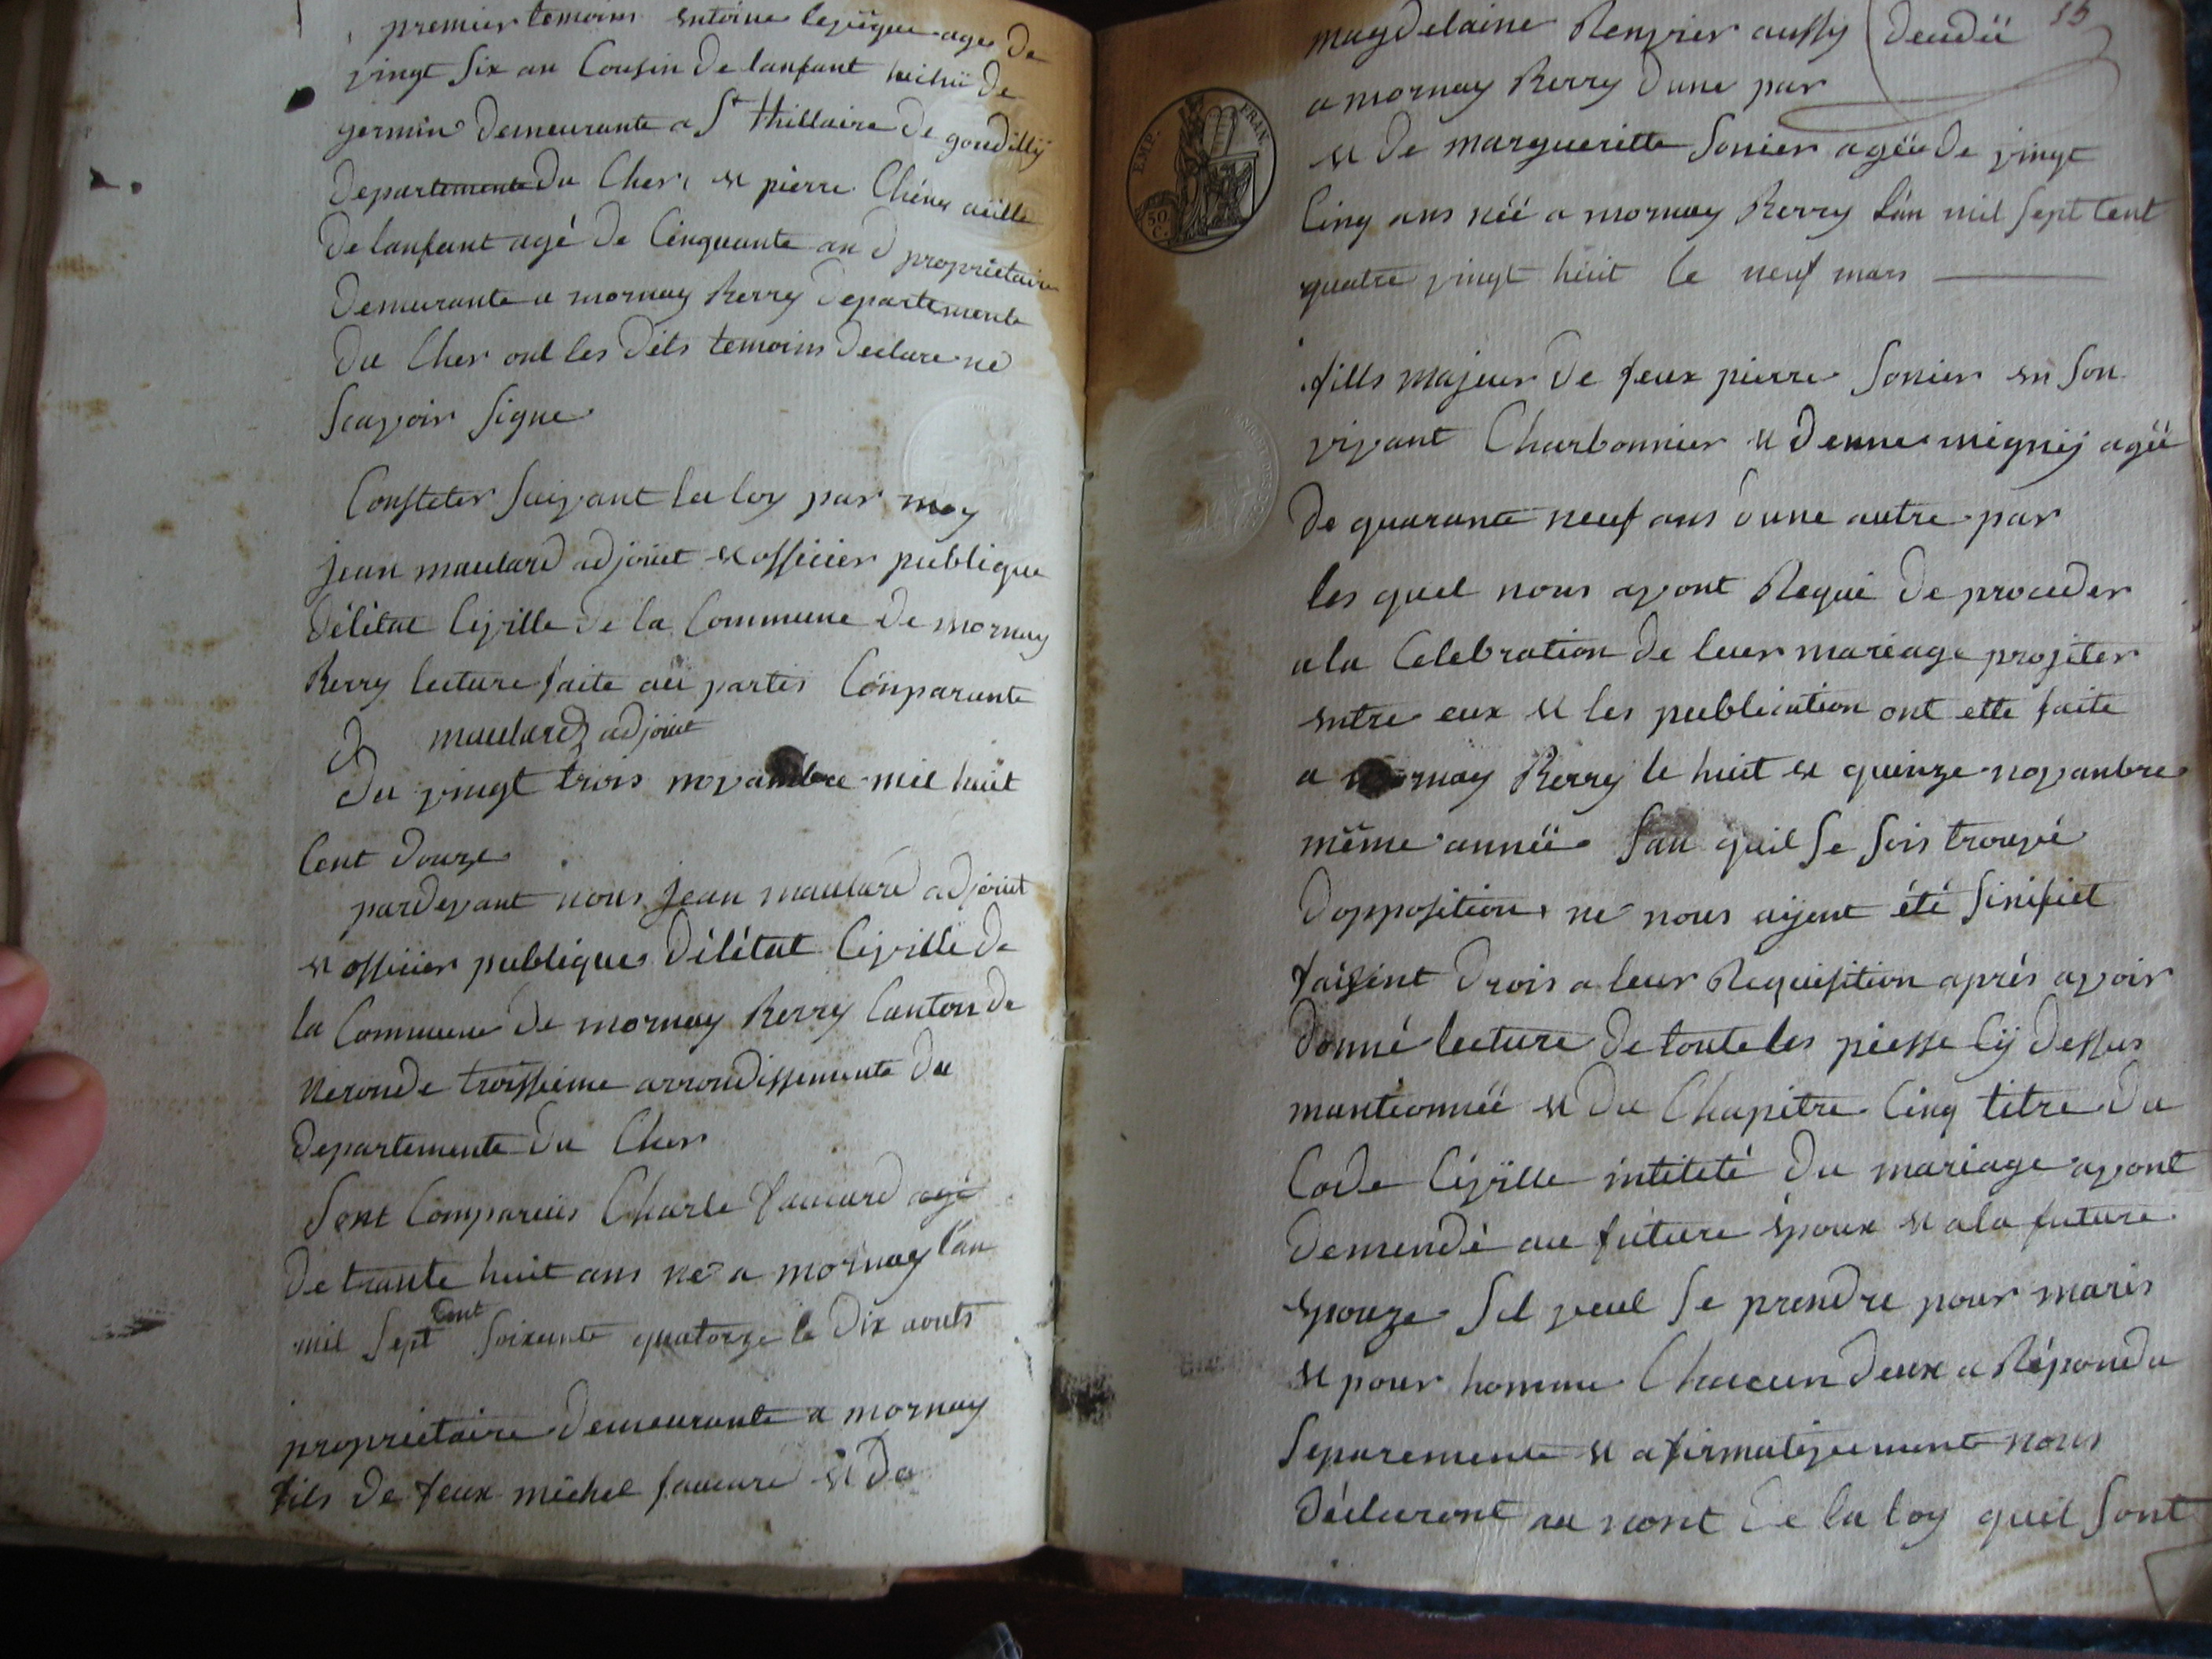 premier temoins entoine leveque agee de
vingt six an Cousin de lanfant
germin demeurante a St thillaire de gondilly
departemente du Cher, et pierre Chénu
de lanfant agé de Cinquante an d proprietaire
demeurante a mornay Berry departemente
du Cher ont les dits temoins declare ne
Scavoir Signe
Consteter Suivant la loy par moy
jean maulard adjoint et officier publique
délétat Civille de la Commune de mornay
Berry lecture faite aü partis Comparante
maulard adjoint
du vingt trois novambre mil huit
Cent douze
pardevant nous jean maulard adjoint
et officier publique délétat Civille de
la Commune de mornay Berry Canton de
Neronde troissieme arrondissemente du
departemente du Cher
Sont Comparuïs Charle faucard agé
de trante huit ans né a mornay lan
mil Sept Cent Soixante quatorze le dix aouts
proprietaire demeurante a mornay
fils de feux michel faucard et de
magdelaine Renvier aussy decedü 15
a mornay Berry dune par
et de margueritte Sonier ageü de vingt
Cinq ans néé a mornay Berry l'an mil Sept Cent
quatre vingt huit le neuf mars
fills majeur de feux pierre Sonier en Son
vivant Charbonnier et denne migny ageü
de quarante neuf ans d'une autre par
les quel nous avont Requi de proceder
a la Celebration de leur mariage projeter
entre eux et les publication ont ette faite
a mornay Berry le huit et quinze novanbre
même annéé San quil Se Sois trouvé
dopposition ne nous aÿent été Sinifiet
faisent drois a leur Requisition aprés avoir
donné lecture de toute les piesse Cÿ dessus
mantionnéé et du Chapitre Cinq titre du
Code Civille intiteté du mariage avont
demendé au future époux et a la future
epouze Sil veul Se prendre pour maris
et pour homme Chacun deux a Répondu
Separemente et afirmativement nous
déclaront au nont de la loy quil Sont
EMP. FRAN.
50 C.